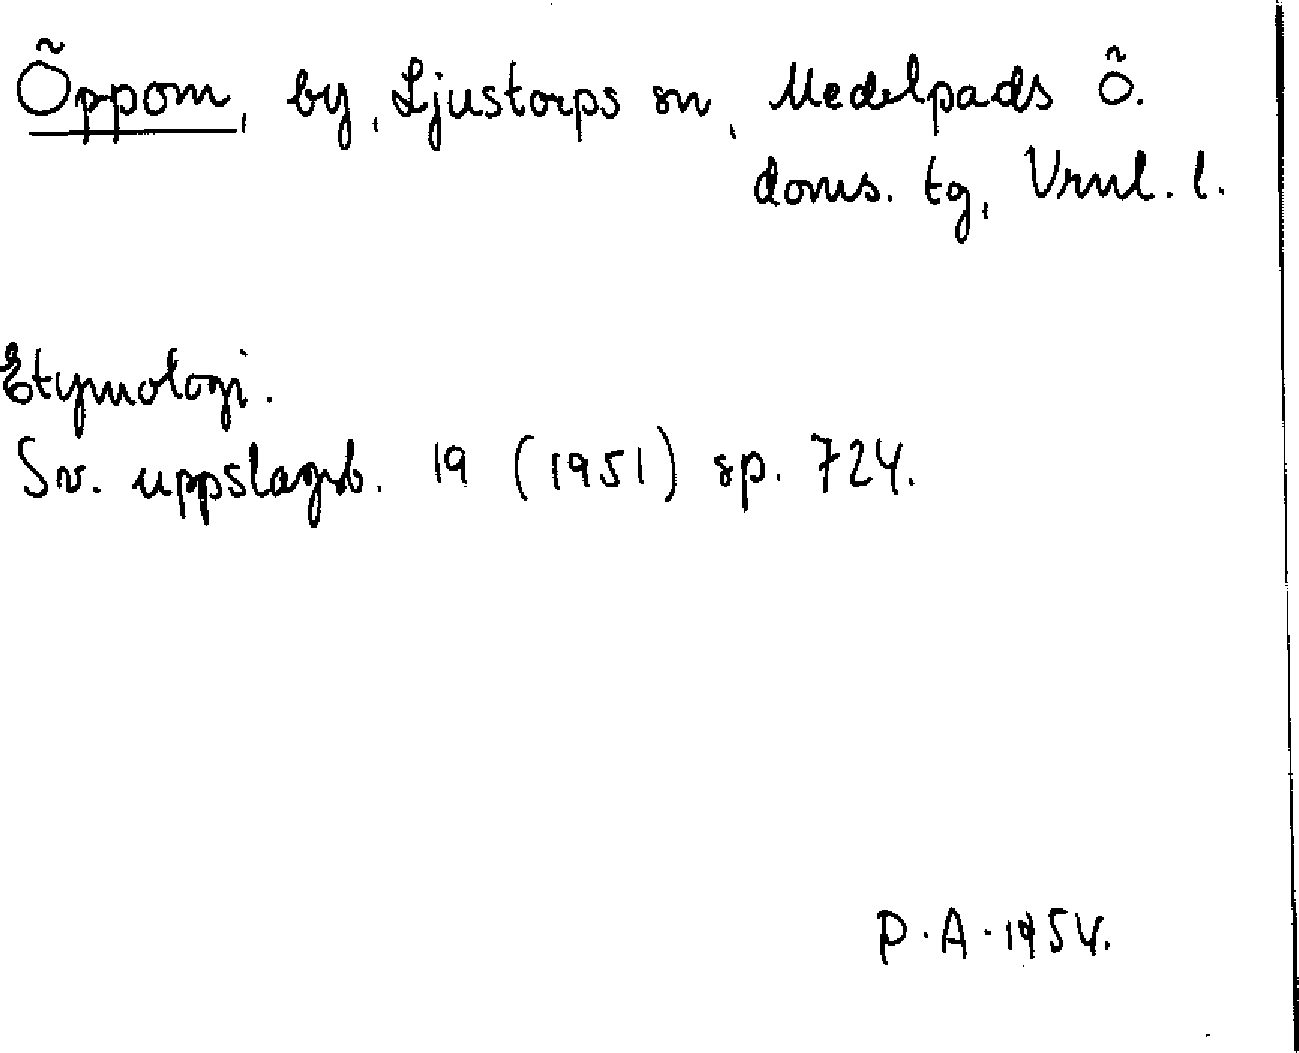 Öppom, by, Ljustorps sn, Medelpads ö.
doms. tg, Vrnl. l.
Etymologi.
Sv. uppslagsb. 19 (1951) sp. 724.
P. A. 1954.